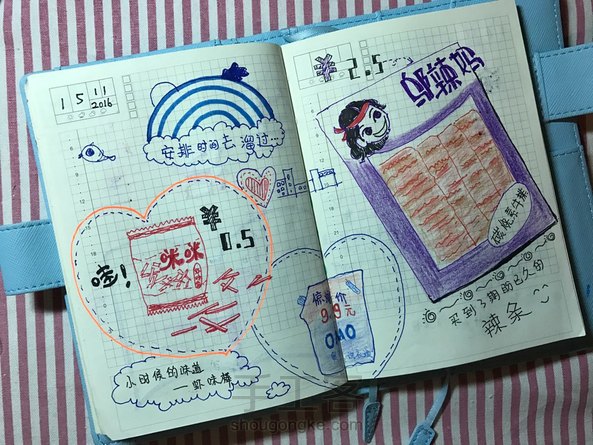 15 11
2016
安排时间去溜过...
哇!
咪咪
虾条
¥
0.5
小时候的味道
—虾味条
¥2.5
邬辣妈
碳烧素牛排
买到了期盼已久的
辣条
偷笑价
9.9元
OMO
手工客
shougongke.com